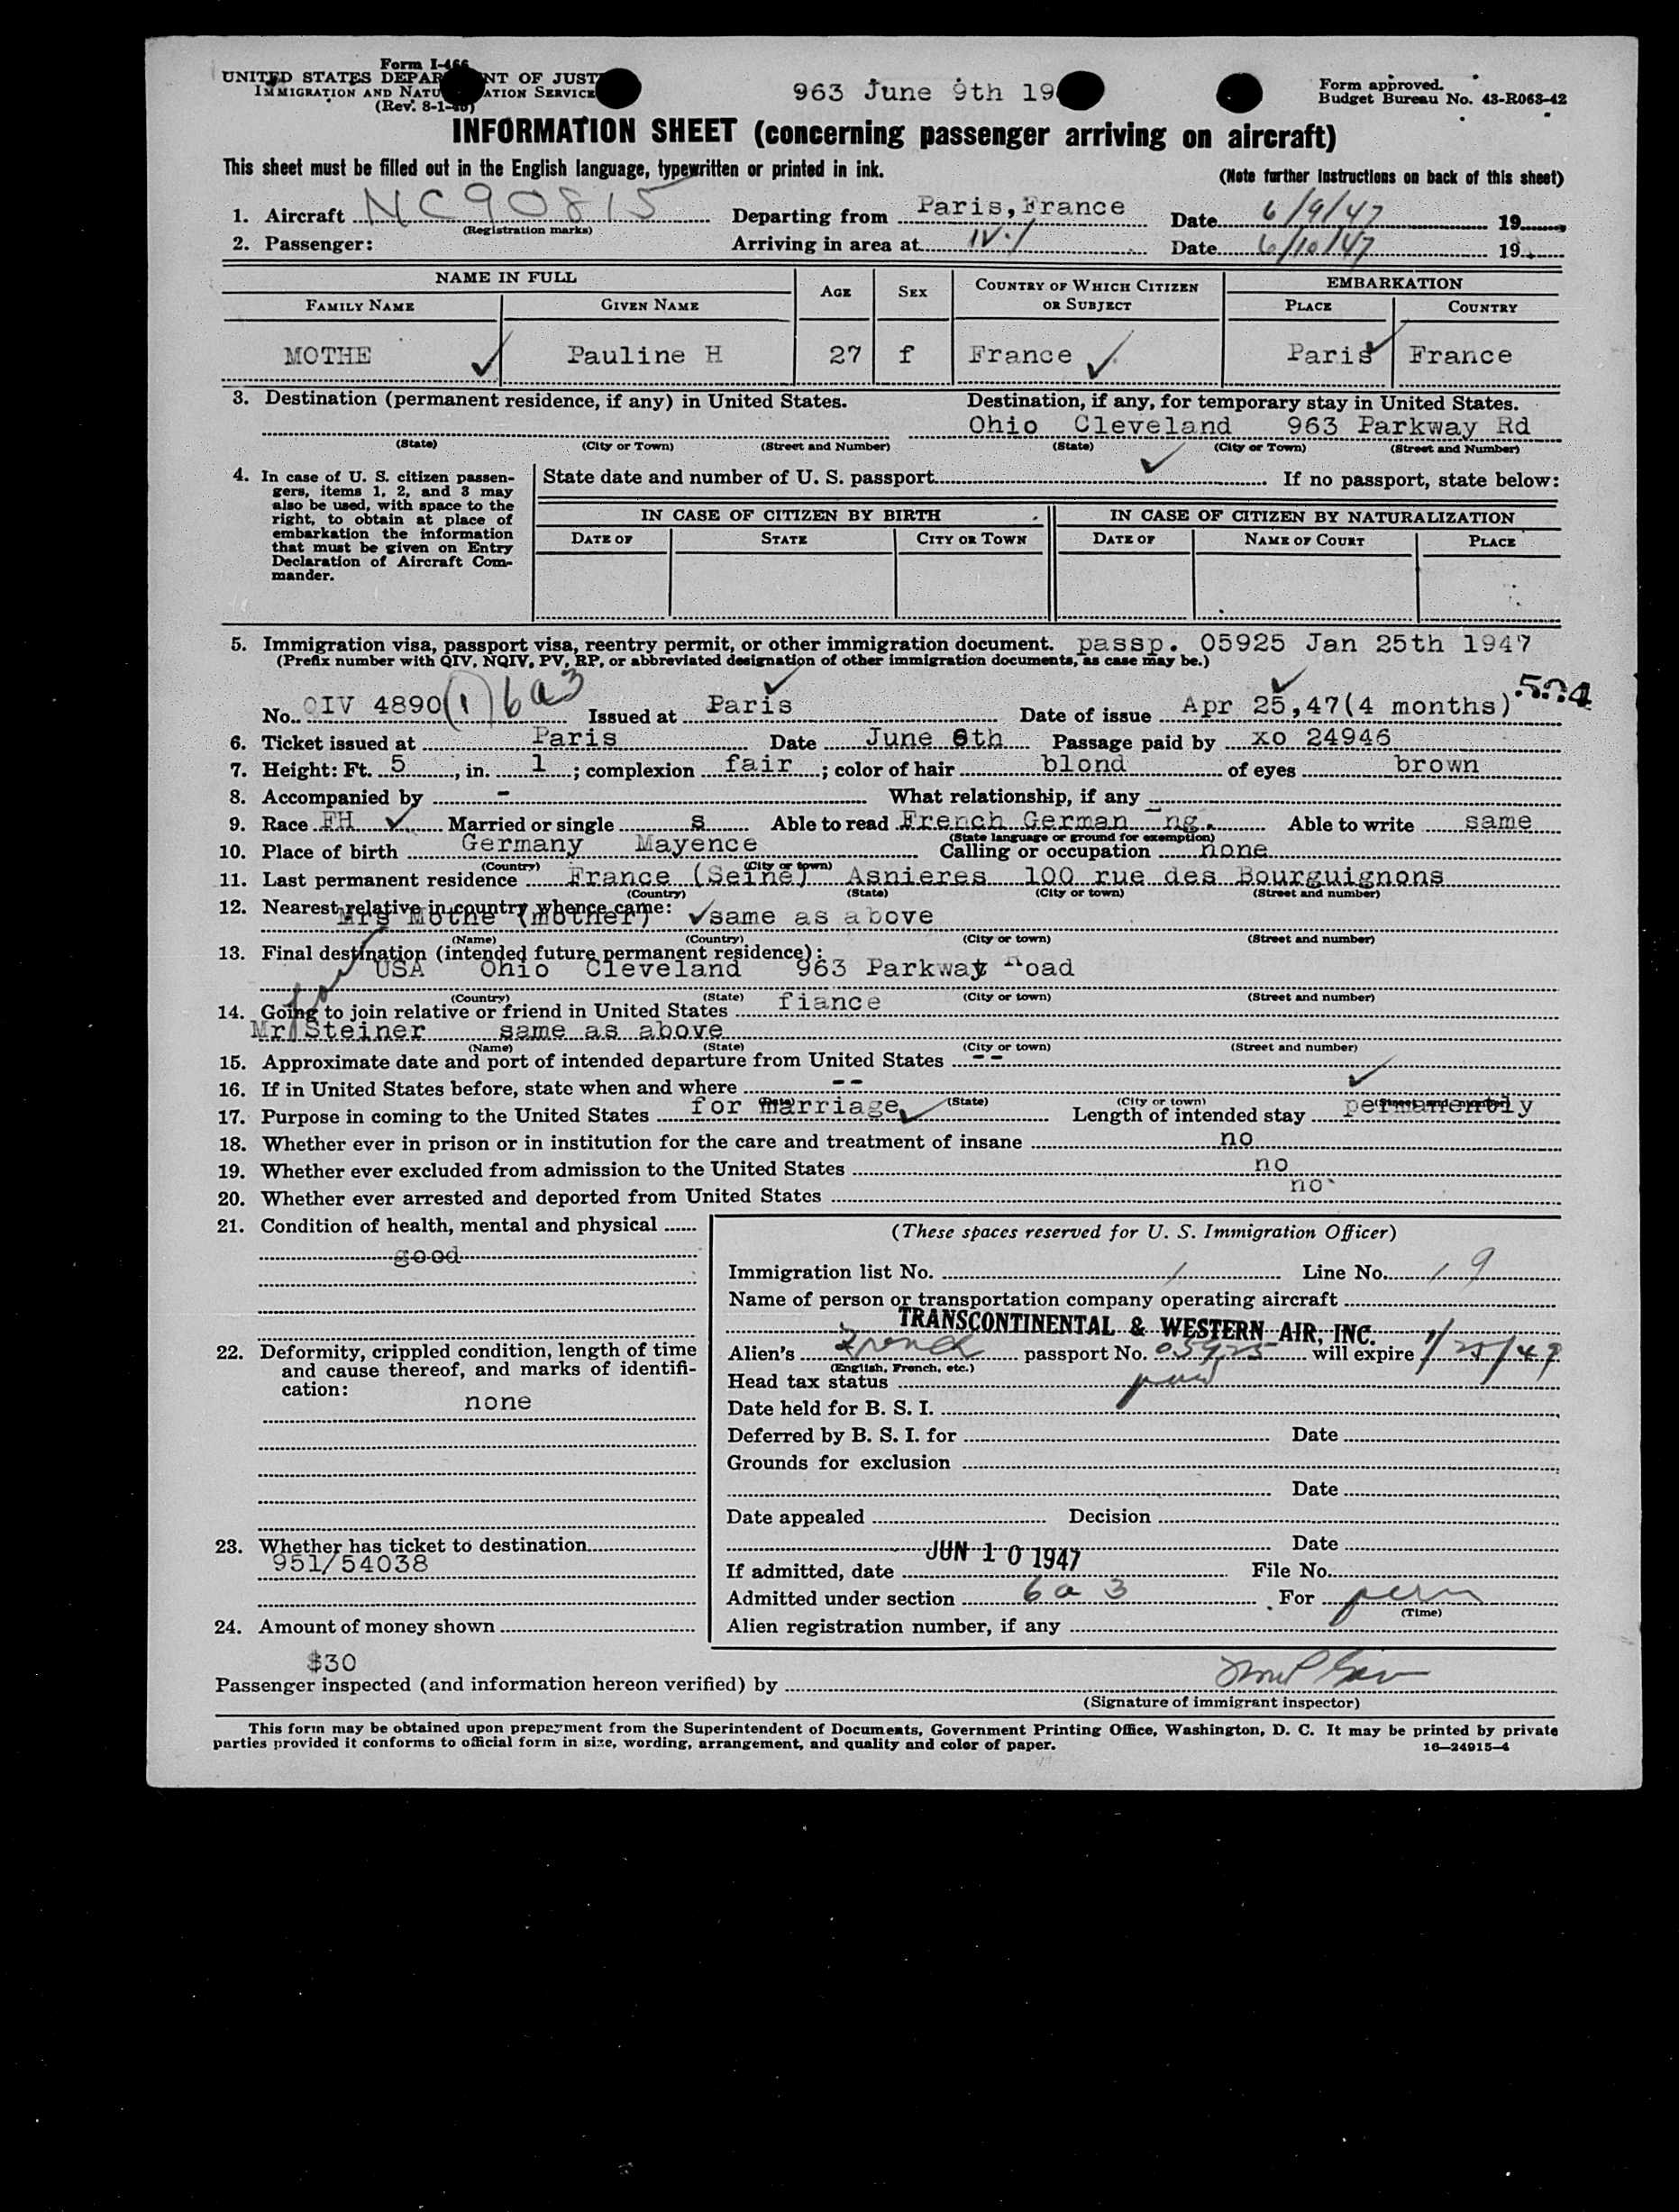 Form I-466
UNITED STATES DEPAR NT OF JUST
IMMIGRATION AND NATU ATION SERVICE
(Rev. 8-1-
963 June 9th 19
Form approved.
Budget Bureau No. 43-R063-42
INFORMATION SHEET (concerning passenger arriving on aircraft)
This sheet must be filled out in the English language, typewritten or printed in ink.
(Note further instructions on back of this sheet)
1. Aircraft NC90815 Departing from Paris, France Date 6/9/47 19
(Registration marks)
2. Passenger: Arriving in area at Date 6/10/47 19
NAME IN FULL AGE SEX COUNTRY OF WHICH CITIZEN OR SUBJECT EMBARKATION
FAMILY NAME GIVEN NAME PLACE COUNTRY
MOTHE Pauline H 27 f France Paris France
3. Destination (permanent residence, if any) in United States. Destination, if any, for temporary stay in United States.
Ohio Cleveland 963 Parkway Rd
(State) (City or Town) (Street and Number) (State) (City or Town) (Street and Number)
4. In case of U. S. citizen passen-
gers, items 1, 2, and 3 may
also be used, with space to the
right, to obtain at place of
embarkation the information
that must be given on Entry
Declaration of Aircraft Com-
mander.
State date and number of U. S. passport If no passport, state below:
IN CASE OF CITIZEN BY BIRTH IN CASE OF CITIZEN BY NATURALIZATION
DATE OF STATE CITY OR TOWN DATE OF NAME OF COURT PLACE
5. Immigration visa, passport visa, reentry permit, or other immigration document. passp. 05925 Jan 25th 1947
(Prefix number with QIV, NQIV, PV, RP, or abbreviated designation of other immigration documents, as case may be.)
No. QIV 4890 (1) 6a3 Issued at Paris Date of issue Apr 25,47(4 months) 504
6. Ticket issued at Paris Date June 6th Passage paid by xo 24946
7. Height: Ft. 5, in. 1; complexion fair; color of hair blond of eyes brown
8. Accompanied by - What relationship, if any -
9. Race FH Married or single s Able to read French German ng. Able to write same
(State language or ground for exemption)
10. Place of birth Germany Mayence Calling or occupation none
(Country) (City or town)
11. Last permanent residence France (Seine) Asnieres 100 rue des Bourguignons
(Country) (State) (City or town) (Street and number)
12. Nearest relative in country whence came:
Mrs Mothe (mother) same as above
(Name) (Country) (City or town) (Street and number)
13. Final destination (intended future permanent residence):
USA Ohio Cleveland 963 Parkway Road
(Country) (State) (City or town) (Street and number)
14. Going to join relative or friend in United States fiance
Mr Steiner same as above
(Name) (State) (City or town) (Street and number)
15. Approximate date and port of intended departure from United States --
16. If in United States before, state when and where --
(Date) (State) (City or town) (Street and number)
17. Purpose in coming to the United States for marriage Length of intended stay permanently
18. Whether ever in prison or in institution for the care and treatment of insane no
19. Whether ever excluded from admission to the United States no
20. Whether ever arrested and deported from United States no
21. Condition of health, mental and physical
good
22. Deformity, crippled condition, length of time
and cause thereof, and marks of identifi-
cation:
none
23. Whether has ticket to destination
951/54038
24. Amount of money shown
$30
(These spaces reserved for U. S. Immigration Officer)
Immigration list No. 1 Line No. 19
Name of person or transportation company operating aircraft
TRANSCONTINENTAL & WESTERN AIR, INC.
Alien's French passport No. 05925 will expire 1/25/49
(English, French, etc.)
Head tax status paid
Date held for B. S. I.
Deferred by B. S. I. for Date
Grounds for exclusion
Date
Date appealed Decision
Date
JUN 10 1947
If admitted, date File No.
Admitted under section 6a3 For perm
(Time)
Alien registration number, if any
Passenger inspected (and information hereon verified) by
(Signature of immigrant inspector)
This form may be obtained upon prepayment from the Superintendent of Documents, Government Printing Office, Washington, D. C. It may be printed by private
parties provided it conforms to official form in size, wording, arrangement, and quality and color of paper. 16—24915-4